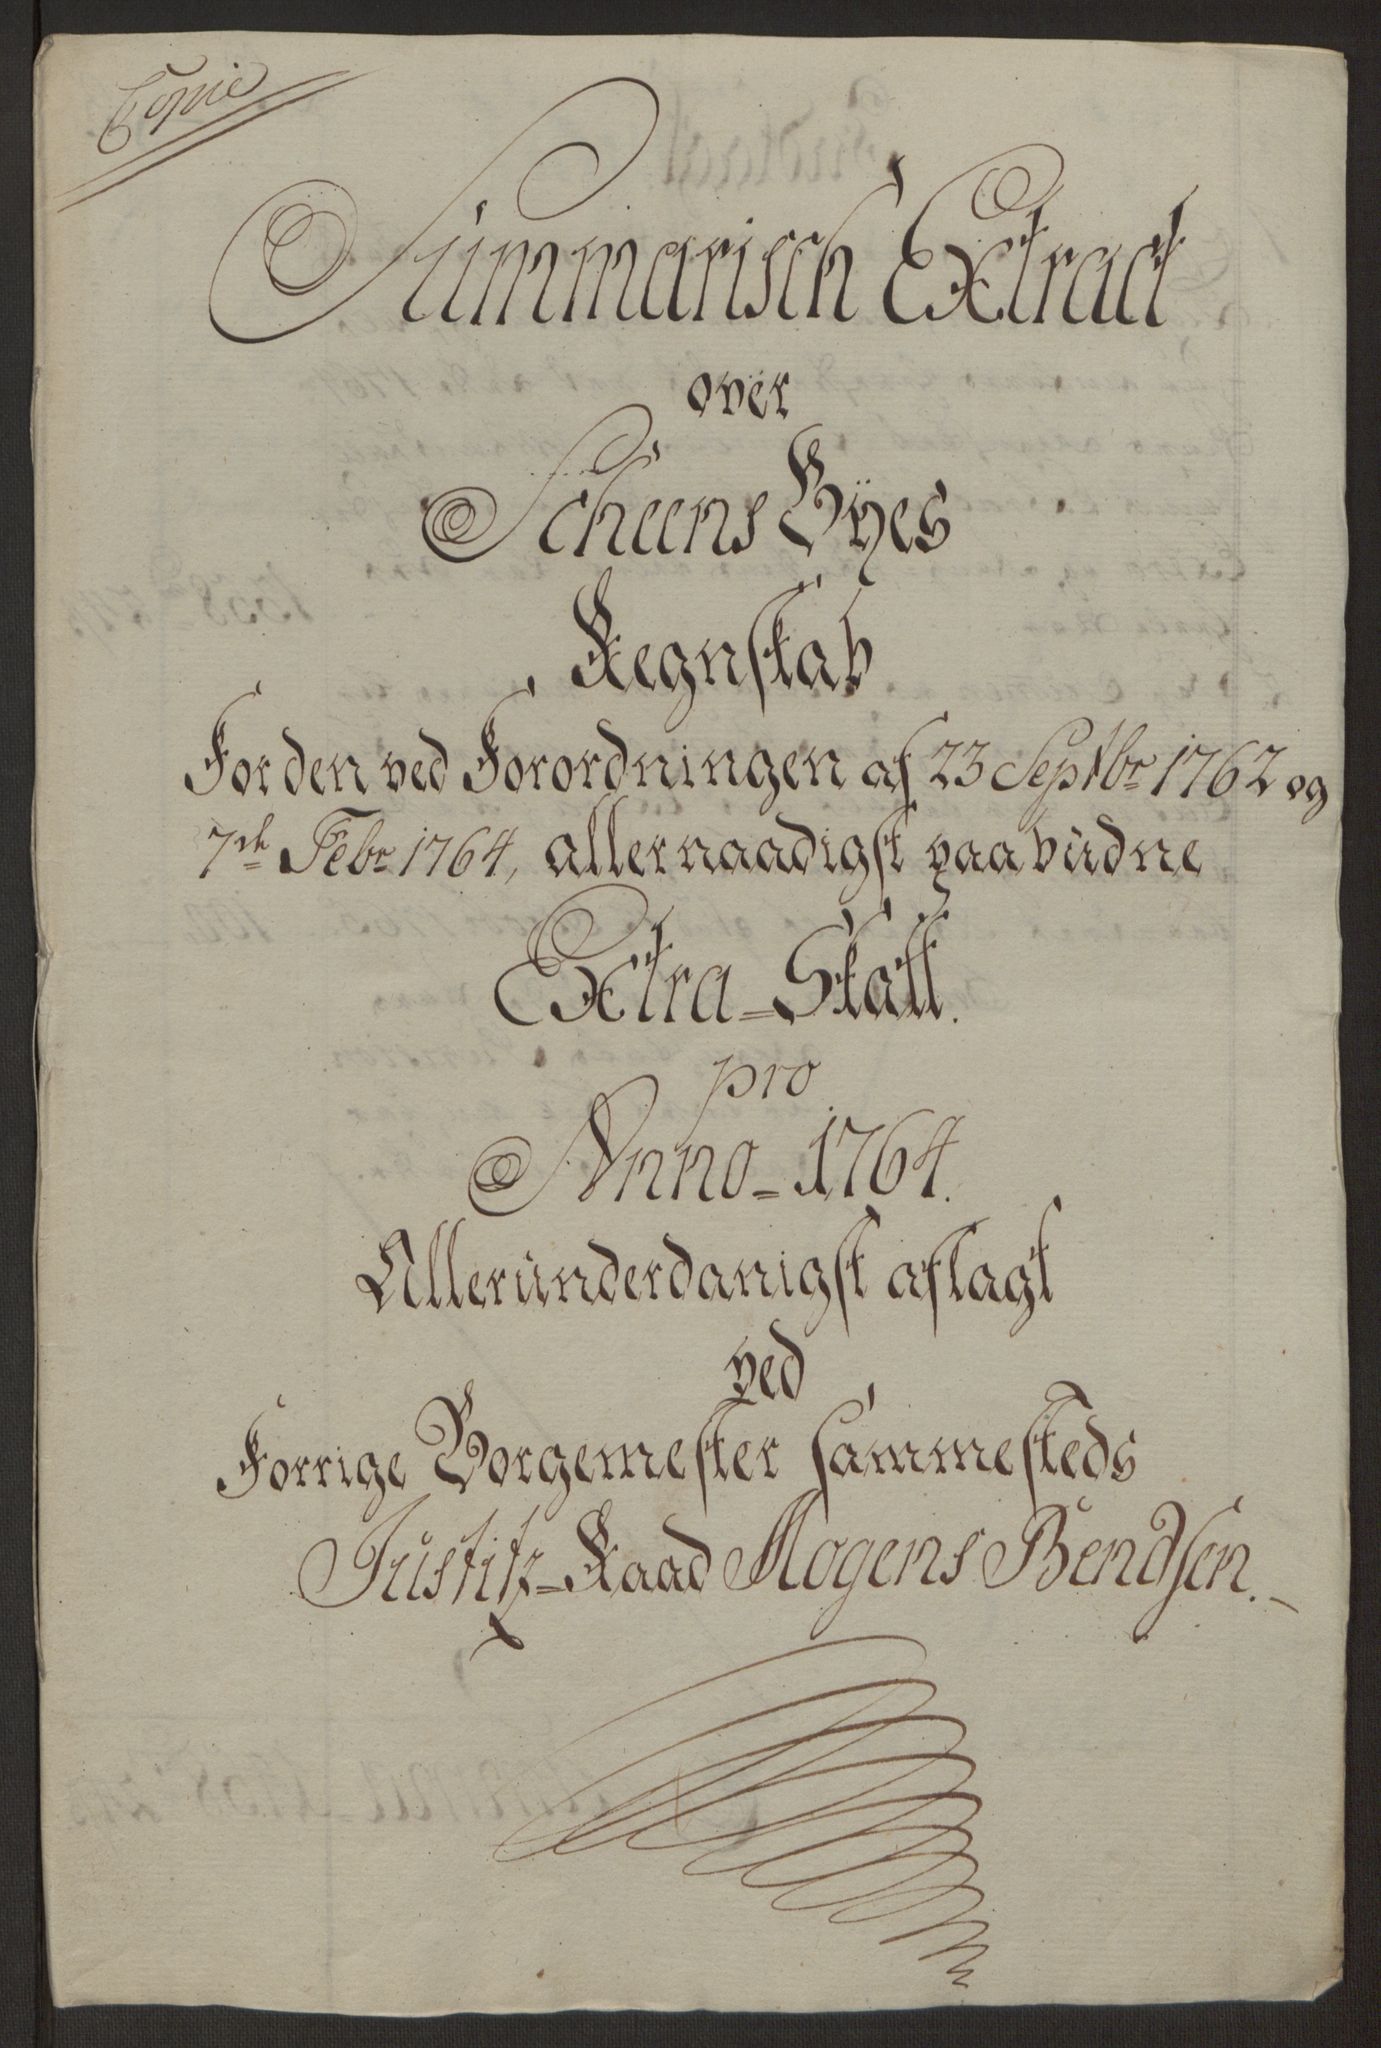 Copie
Summarisch Extract
over
Scheens Byes
Regnskab
For den ved Forordningen af 23 Septbr 1762 og
7de Febr 1764, allernaadigst paabudne
Extra-Skatt.
pro
Anno-1764.
Allerunderdanigst aflagt
ved
Forrige Borgemester sammesteds
Justitz-Raad Mogens Bendsen.